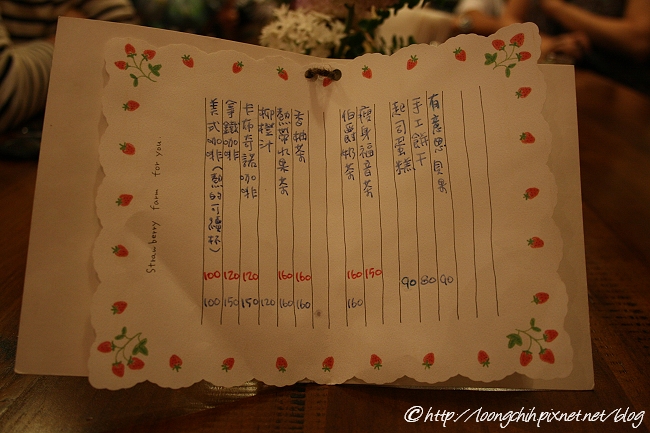 有意思貝果 90
手工餅干 80
起司蛋糕 90
瘦身福音茶 150
伯爵奶茶 160 160
香柚茶 160 160
熱帶水果茶 160 160
柳橙汁 120
卡布奇諾咖啡 120 150
拿鐵咖啡 120 150
美式咖啡(熱的可續杯) 100 100
Strawberry farm for you.
©http://loongchih.pixnet.net/blog